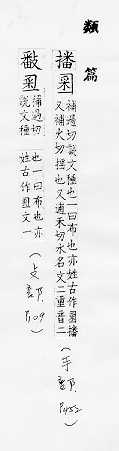 類
篇
播
補過切說文種也一曰布也亦姓古作 播
又補火切揺也又逋禾切水名文二重音二
(手部 P452)
𢿥
補過切
說文種
也一曰布也亦
姓古作 文一
(攴部 P109)